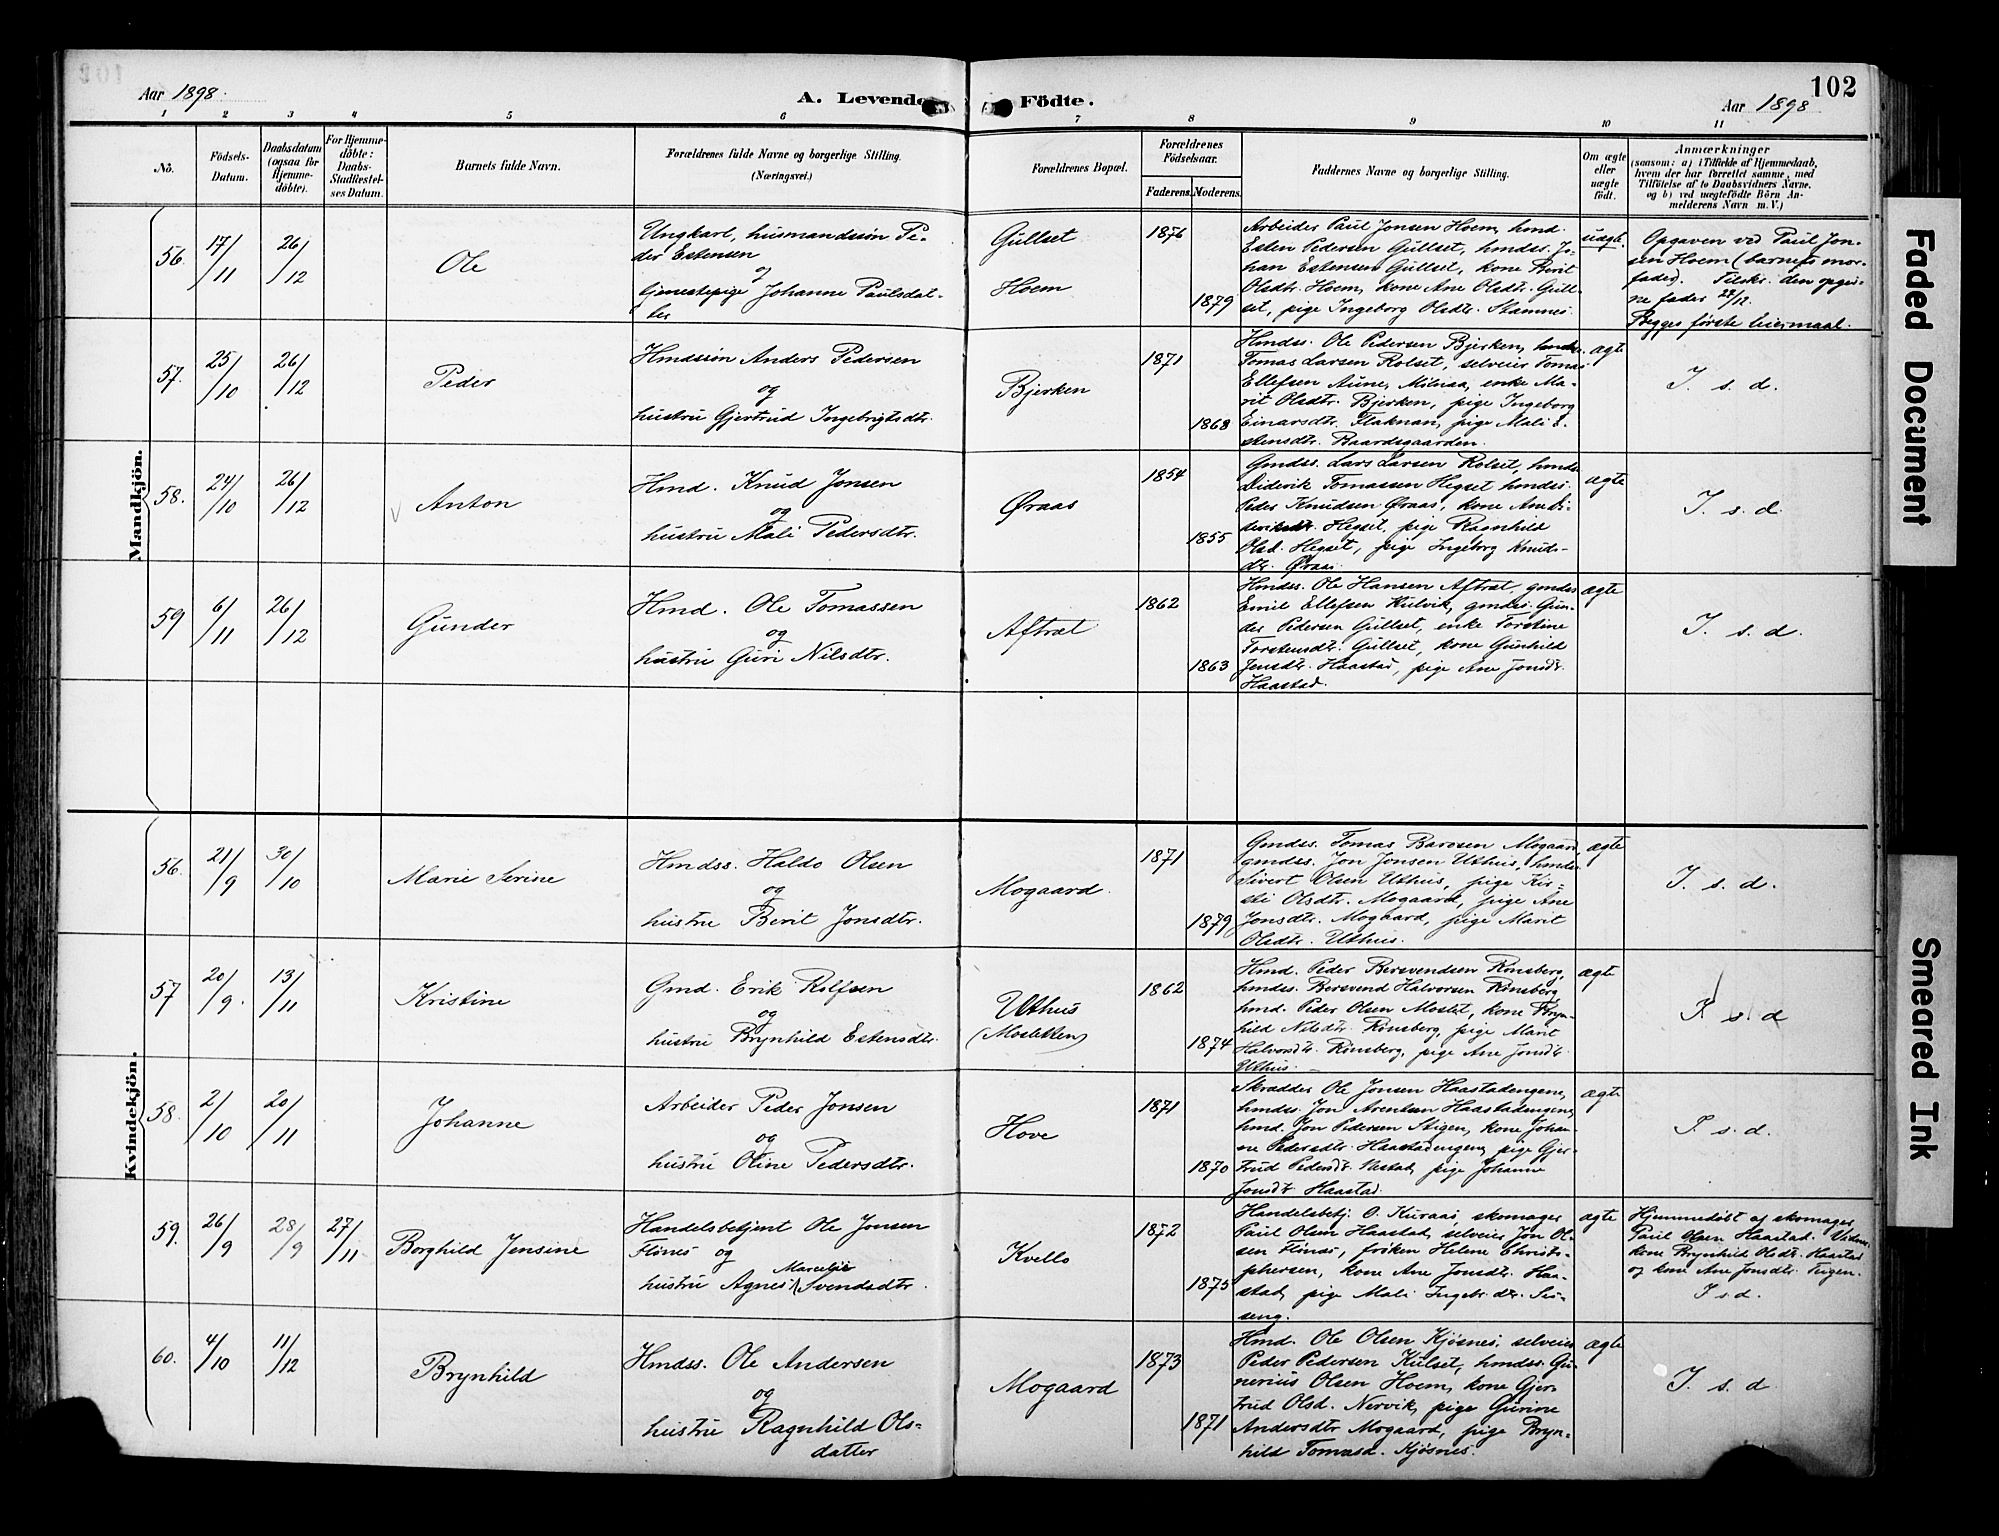 102
Aar 1898.
A. Levende
Födte.
Aar 1898
1 2 3 4 5 6 7 8 9 10 11
No.
Födsels-
Datum.
Daabsdatum
(ogsaa for
Hjemme-
döbte).
For Hjemme-
döbte:
Daabs-
Stadfæstel-
ses Datum.
Barnets fulde Navn.
Forældrenes fulde Navne og borgerlige Stilling.
(Næringsvei.)
Forældrenes Bopæl.
Forældrenes
Födselsaar.
Faderens.
Moderens.
Faddernes Navne og borgerlige Stilling.
Om ægte
eller
uægte
födt.
Anmærkninger
(saasom: a) i Tilfælde af Hjemmedaab,
hvem der har forrettet samme, med
Tilföielse af to Daabsvidners Navne,
og b) ved uægtefödte Börn An-
melderens Navn m. V.)
Mandkjön.
56.
17/11
26/12
Ole
Ungkarl, husmandssön Pe-
der Estensen
og
tjenestepige Johanne Paulsdat-
ter
Gullset
Hoem
1876
1879
Arbeider Paul Jonsen Hoem, hmd.
Esten Pedersen Gullset, hmdss. Jo-
han Estensen Gullset, kone Berit
Olsdtr. Hoem, kone Ane Olsdtr. Gull-
set, pige Ingeborg Olsdtr. Stamnes.
uægte.
Opgaven ved Paul Jon-
sen Hoem (barnets mor-
fader). Tilskr. den opgiv-
ne fader 27/12.
Begges første leiermaal.
57.
25/10
26/12
Peder
Hmdssön Anders Pedersen
og
hustru Gjertrud Ingebrigtsdtr.
Bjerken
1871
1868
Hmdss. Ole Pedersen Bjerken, hmdss.
Tomas Larsen Rolset, selveier Tomas
Ellefsen Aune, enke Ma-
rit Olsdtr. Bjerken, pige Ingeborg
Einarsdtr. Flaknan, pige Mali E-
stensdtr. Baardsgaarden.
ægte
I. s. d.
58.
24/10
26/12
Anton
Hmd. Knud Jonsen
og
hustru Mali Pedersdtr.
Øraas
1854
1855
Gmdss. Lars Larsen Rolset, hmdss.
Diderik Tomassen Hegset hmdss.
Peder Knudsen Øraas, kone Ane Di-
deriksdtr. Hegset, pige Ragnhild
Olsd. Hegset, pige Ingeborg Knuds-
dtr. Øraas
ægte
I. s. d.
59
6/11
26/12
Gunder
Hmd. Ole Tomassen
og
hustru Guri Nilsdtr.
Aftret
1862
1863
Hmdss. Ole Hansen Aftret, gmdss
Emil Ellefsen Kulvik, gmdss. Gun-
der Pedersen Gullset, enke Torstine
Torstensdtr. Gullset, kone Gunhild
Jensdtr. Haastad, pige Ane Jonsdtr.
Haastad.
ægte
I. s. d.
Kvindekjön.
56.
21/9
30/10
Marie Serine
Hmdss. Haldo Olsen
og
hustru Berit Jonsdtr.
Mogaard.
1871
1879
Gmdss. Tomas Barosen Mogaard
gmdss. Jon Jonsen Uthus, hmdss.
Sivert Olsen Uthus, pige Kir-
sti Olsdtr. Mogaard, pige Ane
Jonsdtr. Mogaard, pige Marit
Olsdtr. Uthus.
ægte
I. s. d.
57
20/9.
13/11
Kristine
Gmd. Erik Rolfsen
og
hustru Brynhild Estensdtr.
Uthus
(Mosletten)
1862
1874
Hmd. Peder Bersvendsen Rönsberg,
hmdss. Bersvend Halvorsen Rönsberg
hmd. Peder Olsen Moslet, kone Bryn-
hild Nilsdtr. Rönsberg, pige Marit
Halvorsdtr. Rönsberg, pige Ane Jonsdtr.
Uthus.
ægte
I. s. d
58.
2/10
20/11
Johanne
Arbeider Peder Jonsen
og
hustru Oline Pedersdtr.
Hove
1871
1870
Skrædder Ole Jonsen Haastadengene,
hmdss. Jon Arentsen Haastadengene,
hmd. Jon Pedersen Stigen, kone Johan-
ne Pedersdtr. Haastadengene, pige Gjer-
trud Pedersdtr. Nestad, pige Johanne
Jonsdtr. Haastad.
ægte
I. s. d.
59.
26/9
28/9
27/11
Borghild Jensine
Handelsbetjent Ole Jonsen
Flönes og
Marcelie
hustru Agnes Svendsdtr.
Kvello
1872
1875
Handelsbetj. O. Kuraas, skomager
Paul Olsen Haastad, selveier Jon Ol-
sen Flönes, fröken Helene Christo-
phersen, kone Ane Jonsdtr. Haa-
stad, pige Mali Ingebr.dtr.
ægte
Hjemmedøbt af skomager
Paul Olsen Haastad. Vidner
kone Brynhild Olsdtr. Haastad
og kone Ane Jonsdtr. Teigen.
I. s. d.
60.
4/10
11/12
Brynhild
Hmdss. Ole Andersen
og
hustru Ragnhild Ols-
datter
Mogaard
1873
1871
Hmd. Ole Olsen Kjøsnes, selveier
Peder Pedersen Kulset, hmdss. Gu-
nerius Olsen Hoem, kone Gjer-
trud Olsd. Nervik, pige Gurine
Andersdtr Mogaard, pige Bryn-
hild Tomasd. Kjøsnes.
ægte
I. s. d.
Faded Document
Smeared Ink